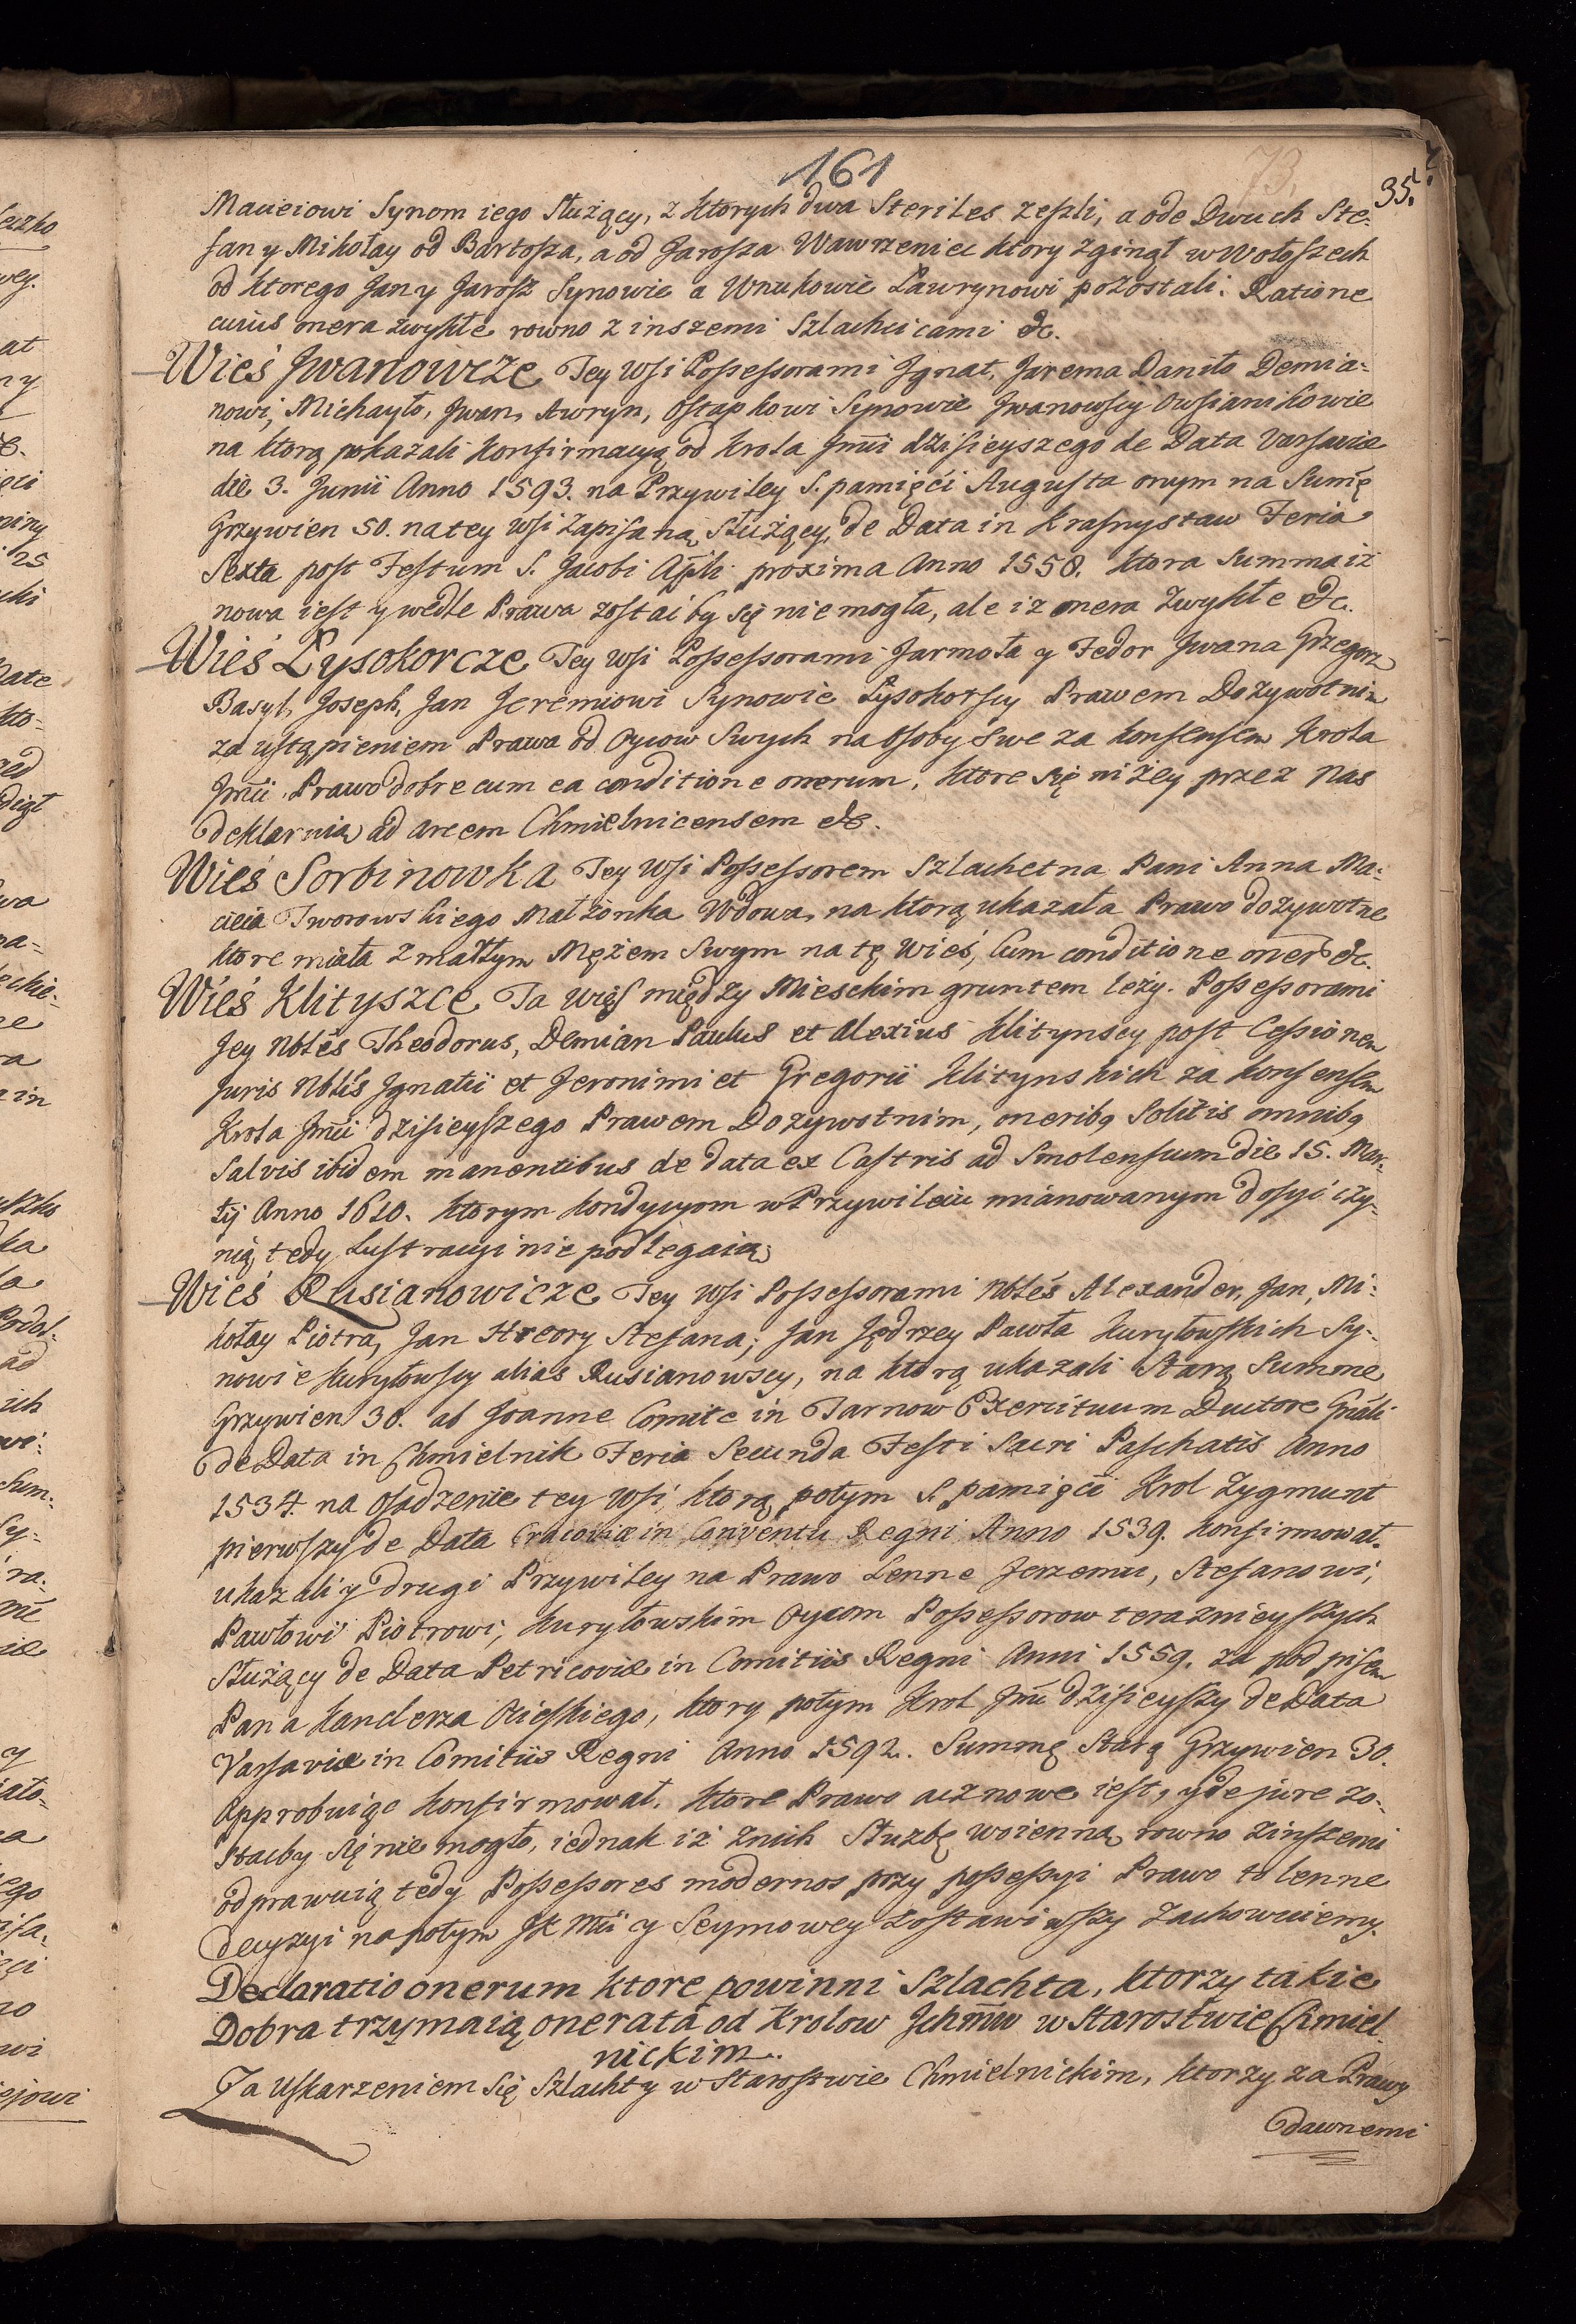 161
73.
35.
Macieiowi Synom iego służący, z ktorych dwa Steriles zeszli, a ode Dwuch Ste-
fan y Mikołay od Bartosza, a od Jarosza Wawrzeniec ktory zginął w Wołoszech
od ktorego Jan y Jarosz Synowie a Wnukowie Ławrynowi pozostali. Ratione
cuius onera zwykłe rowno z inszemi Szlachcicami &c.
Wieś Jwanowcze Tey wsi Possessorami Jgnat, Jarema Daniło Demia-
nowi, Michayło, Jwan, Awryn, Ostapkowi Synowie Jwanowscy Owsianikowie
na ktorą pokazali Konfirmacyą od Krola Jmći dzisieyszego de Data Varsaviæ
die 3. Junii Anno 1593. na Przywiley S. pamięći Augusta onym na Sumę
Grzywien 50. na tey wsi zapisaną służący, de Data in Krasnystaw Feria
Sexta post Festum S. Jacobi Apli proxima Anno 1558. Ktora Summa iż
nowa iest y wedle Prawa zostaiby się nie mogła, ale iż onera zwykłe &c.
Wieś Łysokorcze Tey wsi Possessorami Jarmoła y Fedor Jwana Grzegorz
Basyl, Joseph, Jan Jeremiowi Synowie Łysohorscy Prawem Dożywotnim
za ustąpieniem Prawa od Oycow Swych na osoby swe za konsensem Krola
Jmći. Prawo dobre cum ea conditione onerum, ktore się niżey przez nas
deklaruią ad arcem Chmielnicensem &c.
Wieś Sorbinowka Tey wsi Possessorem Szlachetna Pani Anna Ma-
cieia Tworowskiego Małżonka Wdowa, na ktorą ukazała Prawo dożywotne
ktore miała z małżym Mężem Swym na tę Wieś, Cum conditione oner &c.
Wieś Klityszce Ta wieś między Mieskim gruntem leży. Possessorami
Jey Nbłes Theodorus, Demian Paulus et Alexius Klitynscy post Cessionem
Juris Nblis Jgnatii et Jeronimi et Gregorii Klitynskich za konsensem
Krola Jmći dzisieyszego Prawem Dożywotnim, oneribq solitis omnibq
Salvis ibidem manentibus de data ex Castris ad Smolenscum die 15. Mar-
tij Anno 1610. ktorym kondycyom w Przywileiu mianowanym dosyć czy-
nią, tedy Lustracyi nie podlegaią.
Wieś Rusianowicze Tey wsi Possessorami Nbłes Alexander, Jan, Mi-
kołay Piotra, Jan Hreory Stefana, Jan Jędrzey Pawła Kuryłowskich Sy-
nowie Kuryłowscy alias Rusianowscy, na ktorą ukazali Starą Summe
Grzywien 30. ab Joanne Comite in Tarnow Exercituum Ductore Gnali
de Data in Chmielnik Feria Secunda Festi Sacri Paschatis Anno
1534. na osadzenie tey wsi, ktorą potym S. pamięci Krol Zygmunt
pierwszy de Data Cracoviæ in Conventu Regni Anno 1539. konfirmował.
ukazali y drugi Przywiley na Prawo Lenne Jerzemu, Stefanowi,
Pawłowi Piotrowi, Kuryłowskim Oycom Possessorow teraznieyszych
służący de Data Petricoviæ in Comitiis Regni Anni 1559. za podpisem
Pana Kanclerza Ocieskiego, ktory potym Krol Jmć dzisieyszy de Data
Varsaviæ in Comitiis Regni Anno 1592. Summę Starą Grzywien 30.
Approbuiąc konfirmował. Ktore Prawo acz nowe iest, y de jure zo-
staćby się nie mogło, iednak iż znich Służbę woienną rowno zinszemi
odprawuią tedy Possessores modernos przy possessyi Prawo to lenne
decyzyi napotym JK Mći y Seymowey zostawiwszy zachowuiemy.
Declaratio onerum ktore powinni Szlachta, ktorzy takie
Dobra trzymaią onerata od Krolow Jchmciow w Starostwie Chmiel-
nickim.
Za uskarzeniem się Szlachty w Starostwie Chmielnickim, ktorzy za Prawy
dawnemi